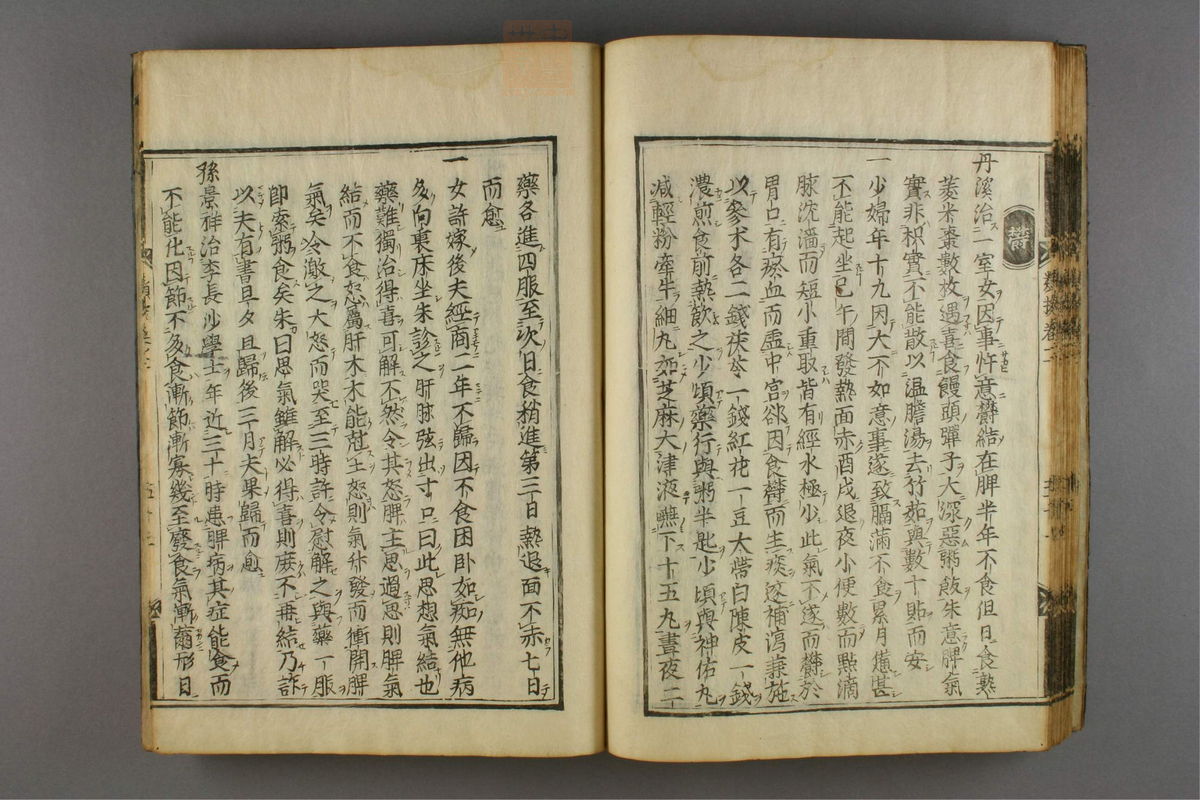 欝
丹溪治一室女因事忤意欝結在脾半年不食但日食熟
菱米棗數枚遇喜食饅頭彈子大深惡粥飯朱意脾氣
實非枳實不能散以温膽湯去竹茹與數十貼而安
一少婦年十九因大不如意事遂致膈滿不食累月憊甚
不能起坐巳午間發熱面赤酉戌退夜小便數而點滴
脉沈濇而短小重取皆有經水極少此氣不遂而欝於
胃口有瘀血而虚中宫却因食欝而生痰遂補瀉兼施
以參朮各二錢茯苓一錢紅花一豆大帶白陳皮一錢
濃煎食前熱飲之少頃藥行與粥半匙少頃與神佑丸
减輕粉牽牛細丸如芝麻大津液嚥下十五丸晝夜二
藥各進四服至次日食稍進第三日熱退面不赤七日
而愈
一女許嫁後夫經商二年不歸因不食困卧如痴無他病
多向裏床坐朱診之肝脉弦出寸口曰此思想氣結也
藥難獨治得喜可解不然令其怒脾主思過思則脾氣
結而不食怒屬肝木木能尅土怒則氣升發而衝開脾
氣矣令激之大怒而哭至三時許令慰解之與藥一服
即索粥食矣朱曰思氣雖解必得喜則庶不再結乃詐
以夫有書旦夕且歸後三月夫果歸而愈
孫景祥治李長沙學士年近三十時患脾病其症能食而
不能化因節不多食漸節漸寡幾至廢食氣漸薾形日